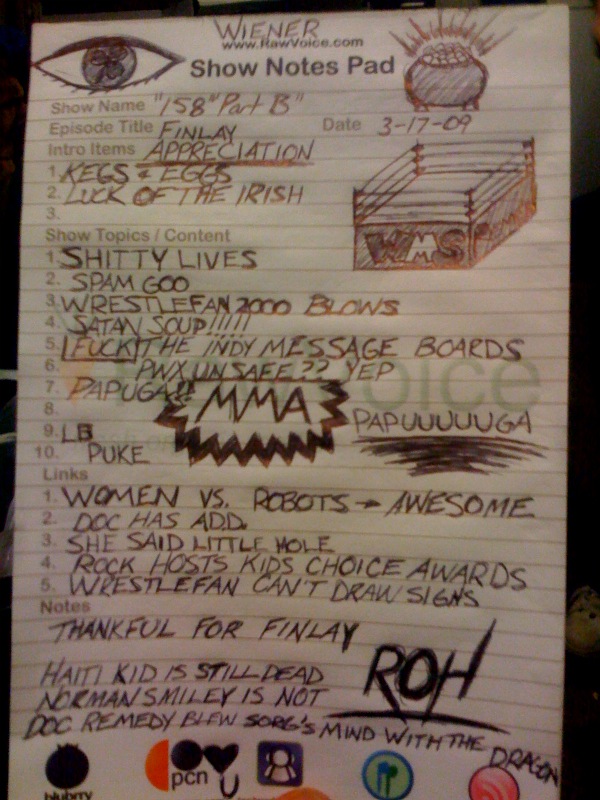 WIENER
www.RawVoice.com
Show Notes Pad
Show Name "158" Part B"
Episode Title FINLAY
Date 3-17-09
Intro Items APPRECIATION
1. KEGS & EGGS
2. LUCK OF THE IRISH
3.
WMS
Show Topics / Content
1. SHITTY LIVES
2. SPAM GOO
3. WRESTLEFAN 2000 BLOWS
4. SATAN SOUP!!!!!
5. FUCK THE INDY MESSAGE BOARDS
6. PWX UNSAFE?? YEP
7. PAPUGA!!
MMA
8.
PAPUUUUUGA
9. LB
10. PUKE
Links
1. WOMEN VS. ROBOTS → AWESOME
2. DOC HAS ADD.
3. SHE SAID LITTLE HOLE
4. ROCK HOSTS KIDS CHOICE AWARDS
5. WRESTLEFAN CAN'T DRAW SIGNS
Notes
THANKFUL FOR FINLAY
ROH
HAITI KID IS STILL DEAD
NORMAN SMILEY IS NOT
DOC REMEDY BLEW SORG'S MIND WITH THE DRAGON
blubrry
pcn